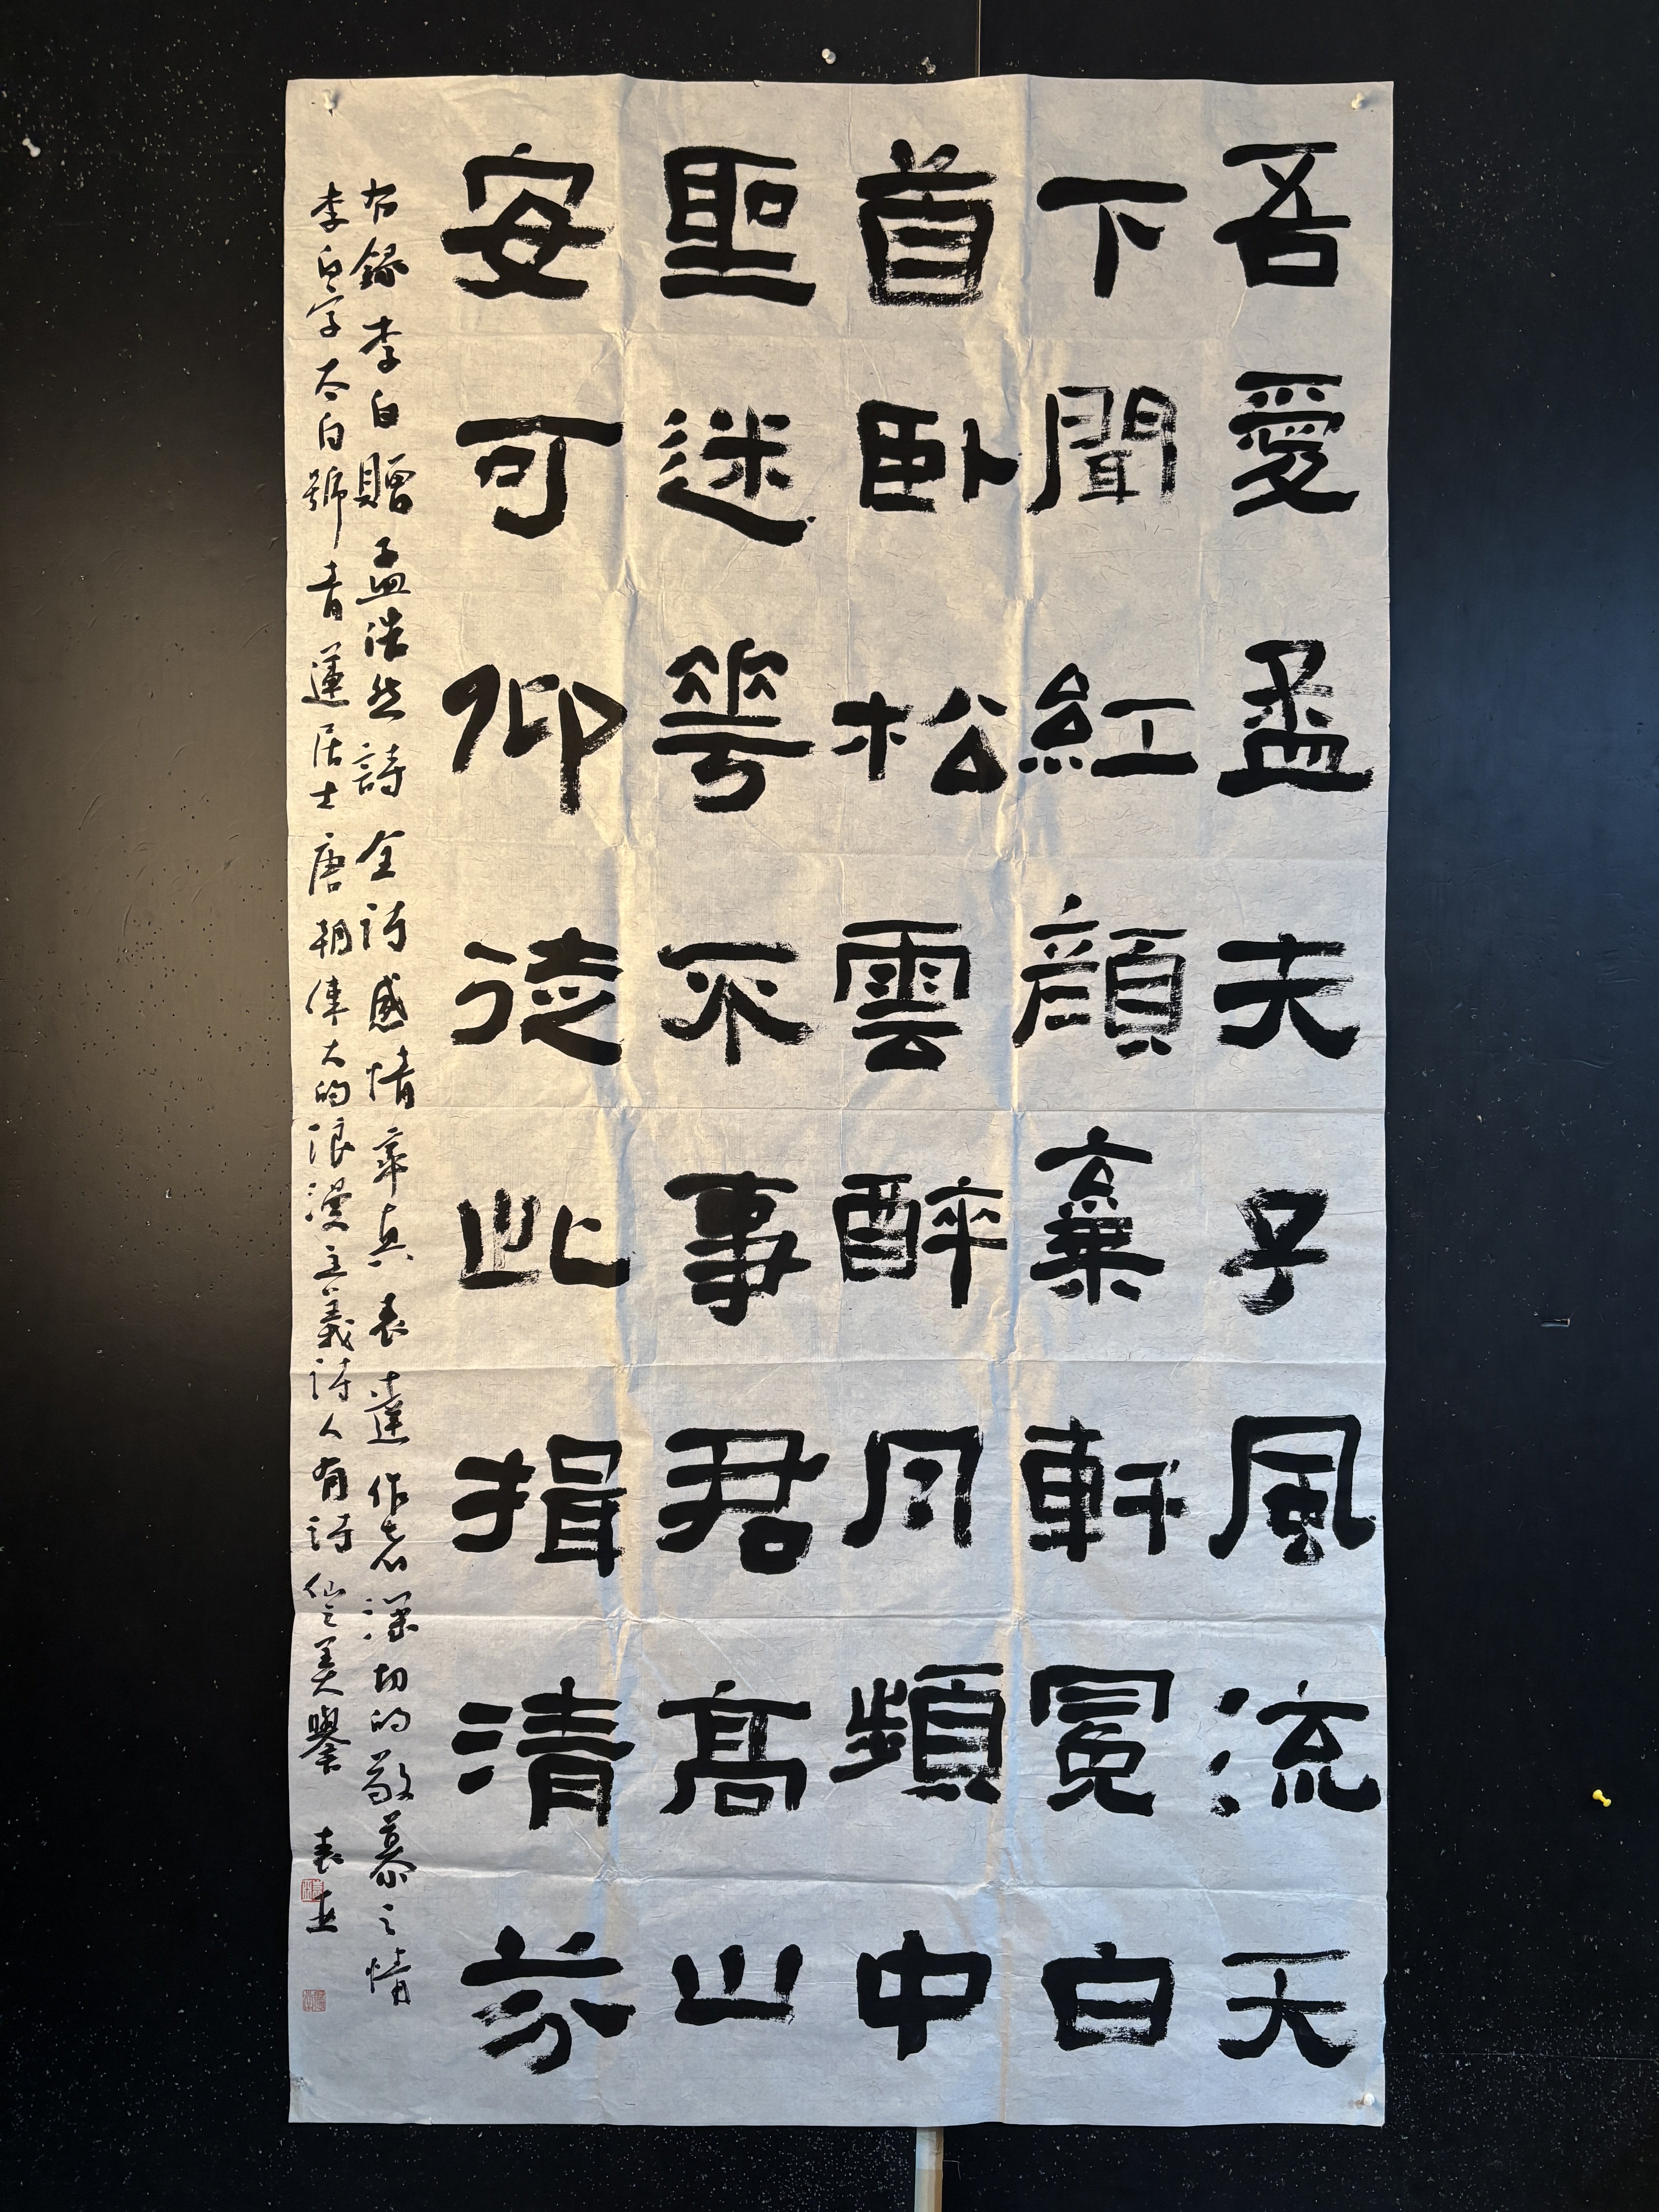 吾愛孟夫子風流天
下聞紅顏棄軒冕白
首卧松雲醉月頻中
聖迷華不事君高山
安可仰徒此揖清芬
右錄李白贈孟浩然詩全詩感情率真表達作者深切的敬慕之情
李白字太白號青蓮居士唐朝偉大的浪漫主義詩人有詩仙之美譽